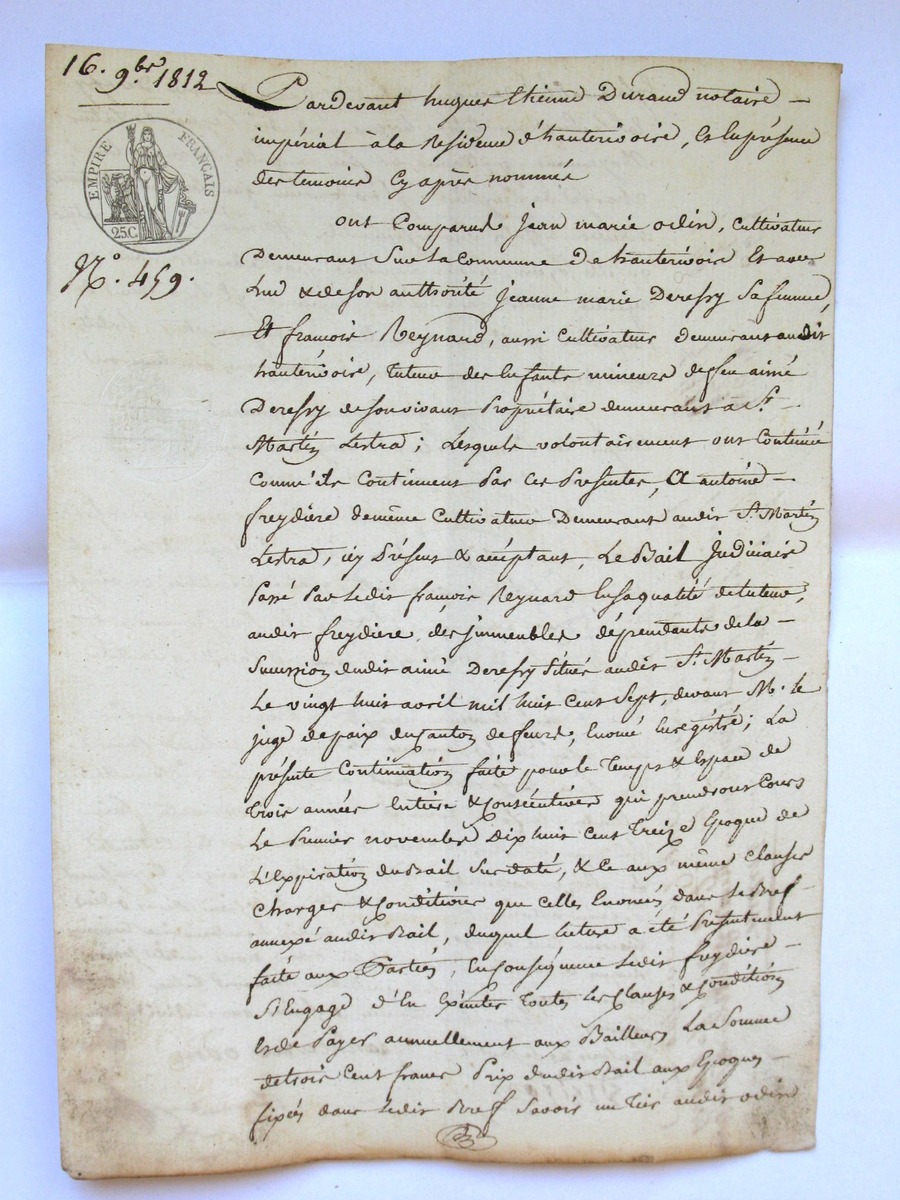 16. 9.bre 1812
EMPIRE FRANÇAIS
25C.
N.o 459.
Pardevant hugues Etienne Durand notaire
impérial à la Residence d'hauterivoire, Et En présence
des temoins Cy après nommés
ont Comparus Jean marie odin, Cultivateur
Demeurant Sur La Commune d'hauterivoire Et avec
Lui & de Son authorité Jeanne marie Deressy Sa femme,
Et françois Reynard, aussi Cultivateur Demeurant audit
hauterivoire, tuteur des Enfants mineurs de feu aimé
Deressy de Son vivant Propriétaire demeurant à St.
Martin Lestra; Lesquels volontairement ont Continué
Comme ils Continuent Par Ces Presentes, A antoine
freydiere de même Cultivateur Demeurant audit St. Martin
Lestra, icy Présent & acceptant, Le Bail Judiciaire
Passé Par Ledit françois Reynard En Sa qualité de tuteur,
audit freydiere, des immeubles dépendants de la
Succession dudit aimé Deressy Situés audit St. Martin
Le vingt huit avril mil huit Cent Sept, devant M. le
juge de paix du Canton de feurs, Enregistré; La
présente Continuation faite pour le Temps & Espace de
trois années Entieres & Consécutives qui prendront Cours
Le Premier novembre Dix huit Cent Treize Epoque de
L'Expiration du Bail Sus daté, & Ce aux même Clauses
Charges & Conditions que Celles Enoncées dans Le Bref
annexé audit Bail, duquel lecture a été Présentement
faite aux Parties, En Conséquence Ledit freydiere
S'Engage d'En Exécuter Toutes Les Clauses & Conditions
Et de Payer annuellement aux Bailleurs La Somme
de trois Cent francs Prix dudit Bail aux Epoques
fixées dans Ledit Bref Savoir un tiers audit odin